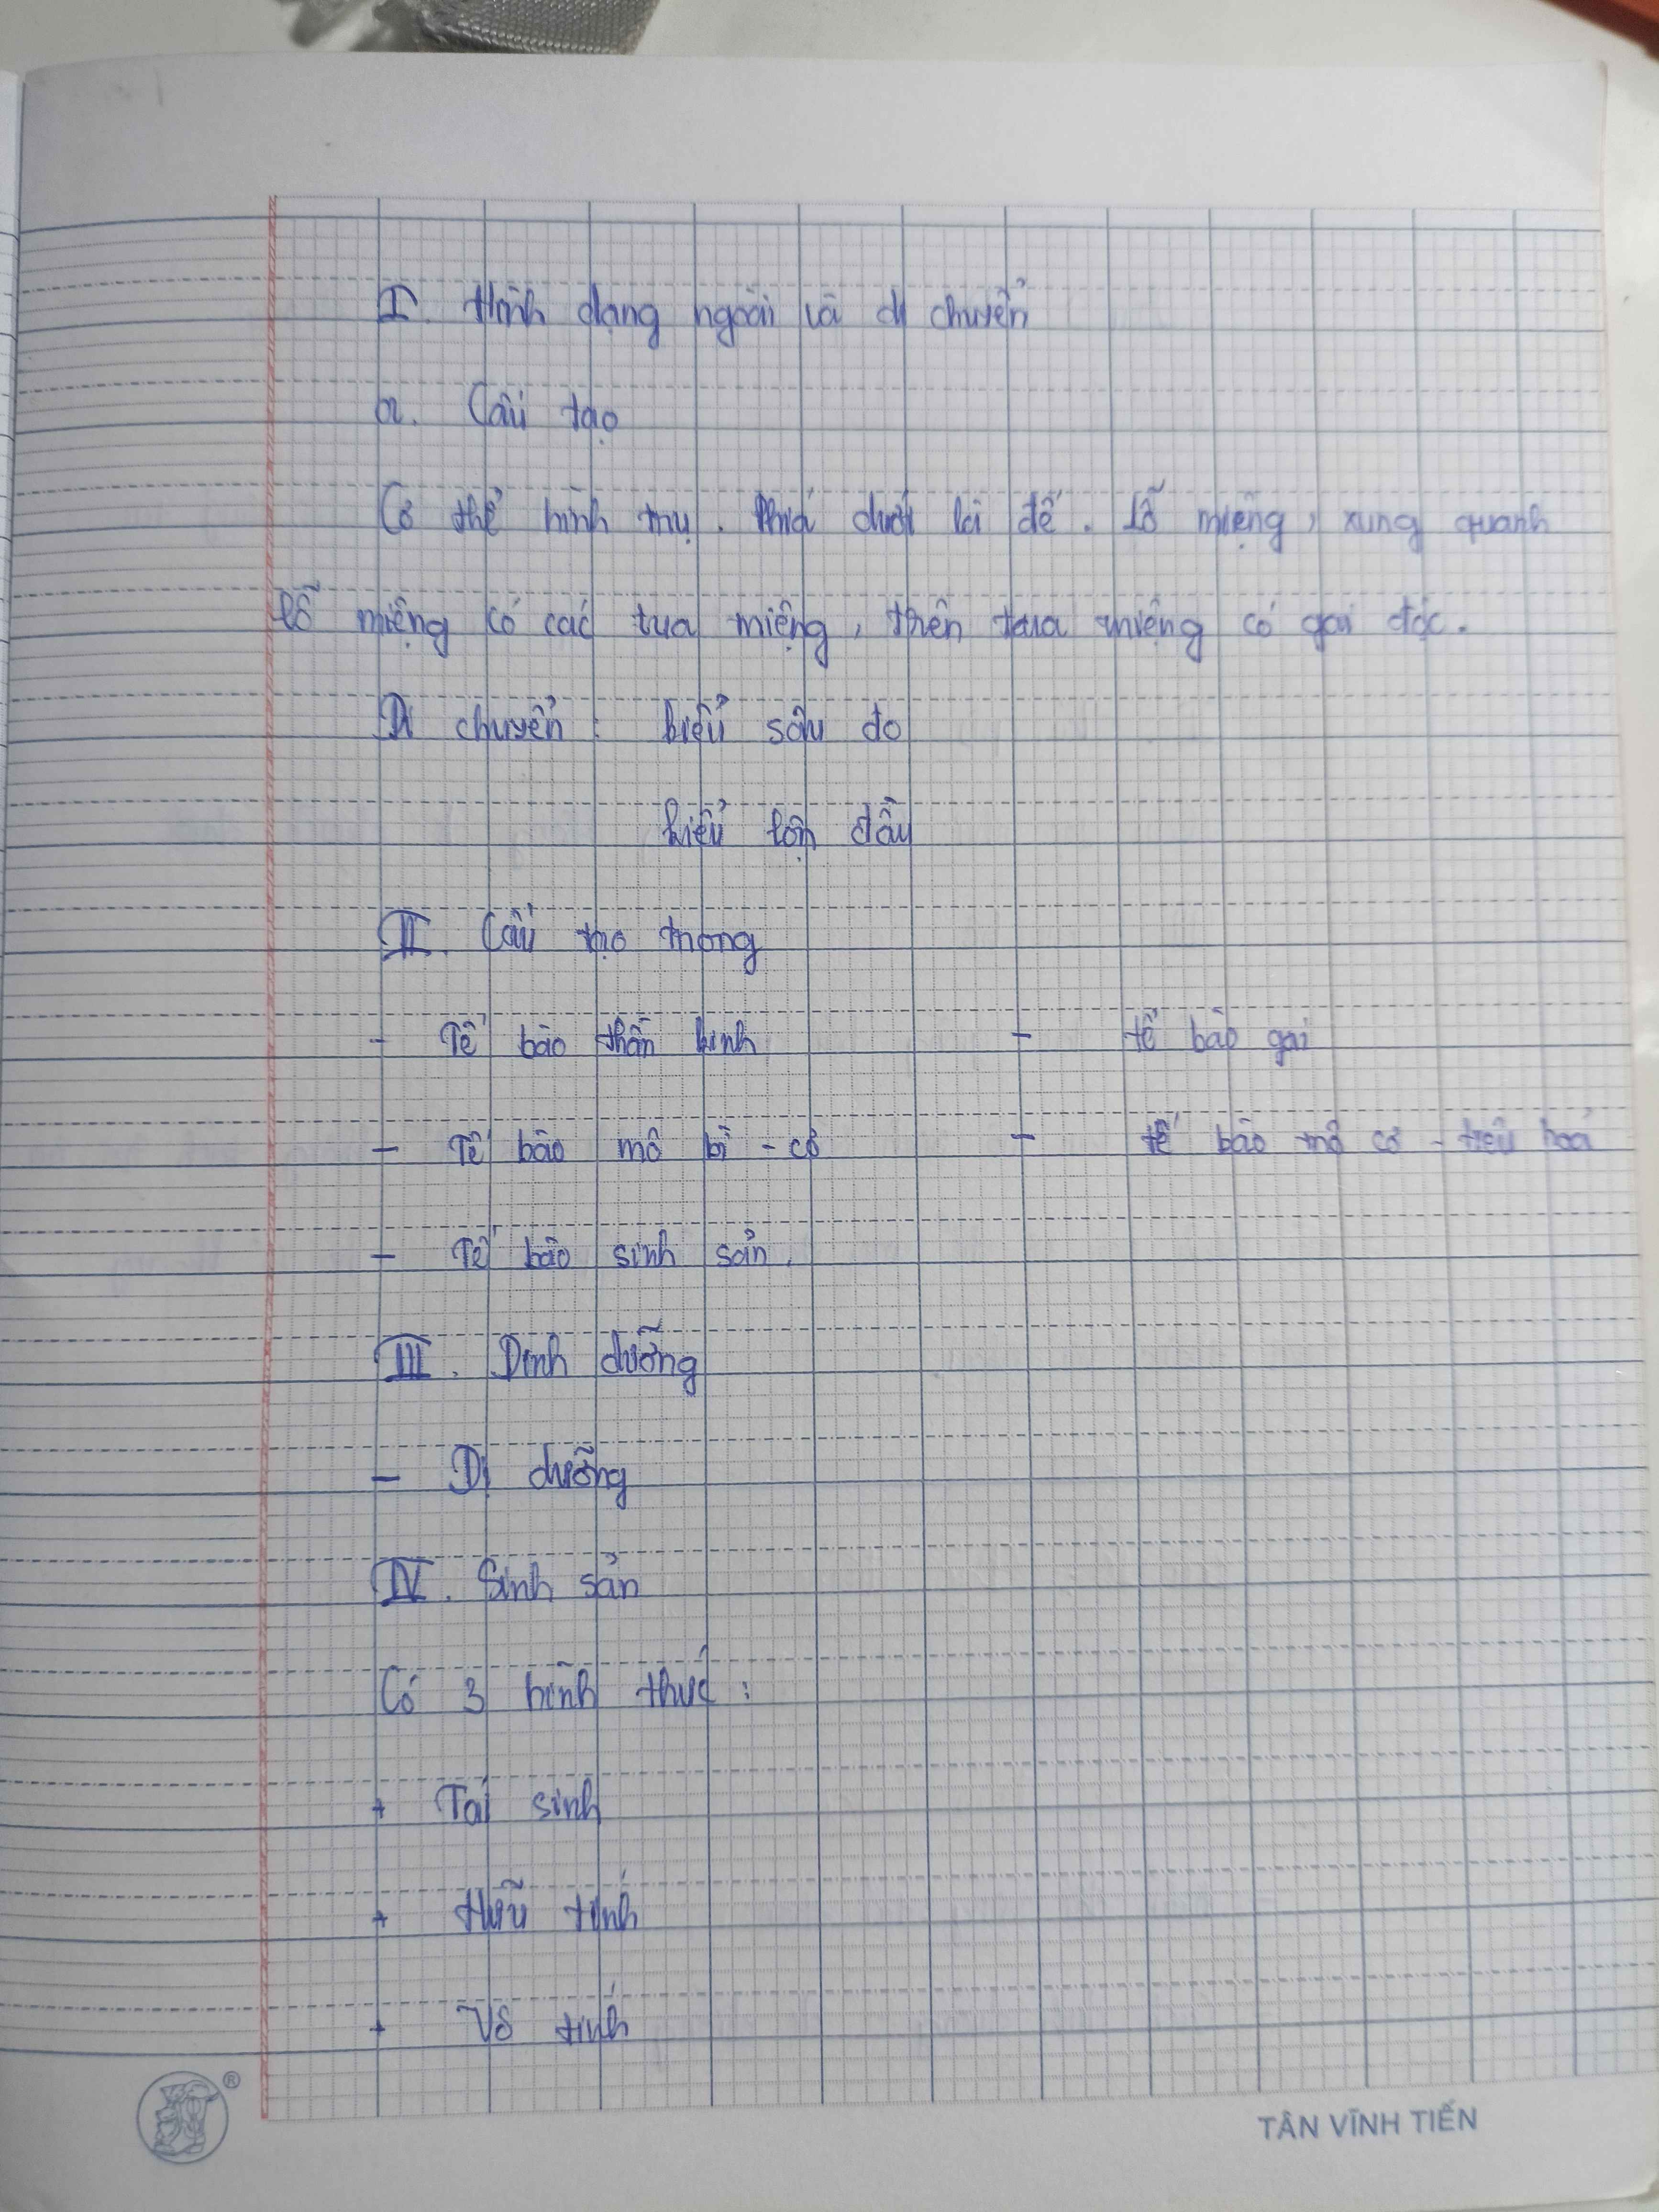 I. Hình dạng ngoài và di chuyển
a. Cấu tạo
Cơ thể hình trụ. Phía dưới là đế. Lỗ miệng, xung quanh
lỗ miệng có các tua miệng, trên tua miệng có gai độc.
Di chuyển: kiểu sâu đo
kiểu lộn đầu
II. Cấu tạo trong
- Tế bào thần kinh - tế bào gai
- Tế bào mô bì - cơ - tế bào mô cơ - tiêu hoá
- Tế bào sinh sản.
III. Dinh dưỡng
- Dị dưỡng
IV. Sinh sản
Có 3 hình thức:
+ Tái sinh
+ Hữu tính
+ Vô tính
®
TÂN VĨNH TIẾN